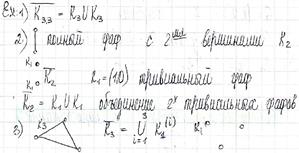 Ex: 1) K̅₃,₃ = K₃ ∪ K₃
2) полный граф с 2ᵐᵃ вершинами K₂
K₁ K̅₂ K₁ = (1,0) тривиальный граф
K₁
K̅₂ = K₁ ∪ K₁ объединение 2ˣ тривиальных графов
3) K₃ K̅₃ = ∪³ᵢ₌₁ K₁⁽ⁱ⁾ K₁